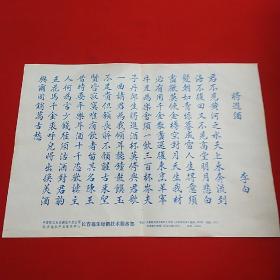 將進酒
李白
君不見黃河之水天上來奔流到
海不復回又不見高堂明鏡悲白
髮朝如青絲暮成雪人生得意須
盡歡莫使金樽空對月天生我材
必有用千金散盡還復來烹羊宰
牛且為樂會須一飲三百杯岑夫
子丹邱生將進酒杯莫停與君歌
一曲請君為我傾耳聽鐘鼓饌玉
不足貴但願長醉不願醒古來聖
賢皆寂寞惟有飲者留其名陳王
昔時宴平樂斗酒十千恣歡謔主
人何為言少錢徑須沽酒對君酌
五花馬千金裘呼兒將出換美酒
與爾同銷萬古愁
长春 技术服务部